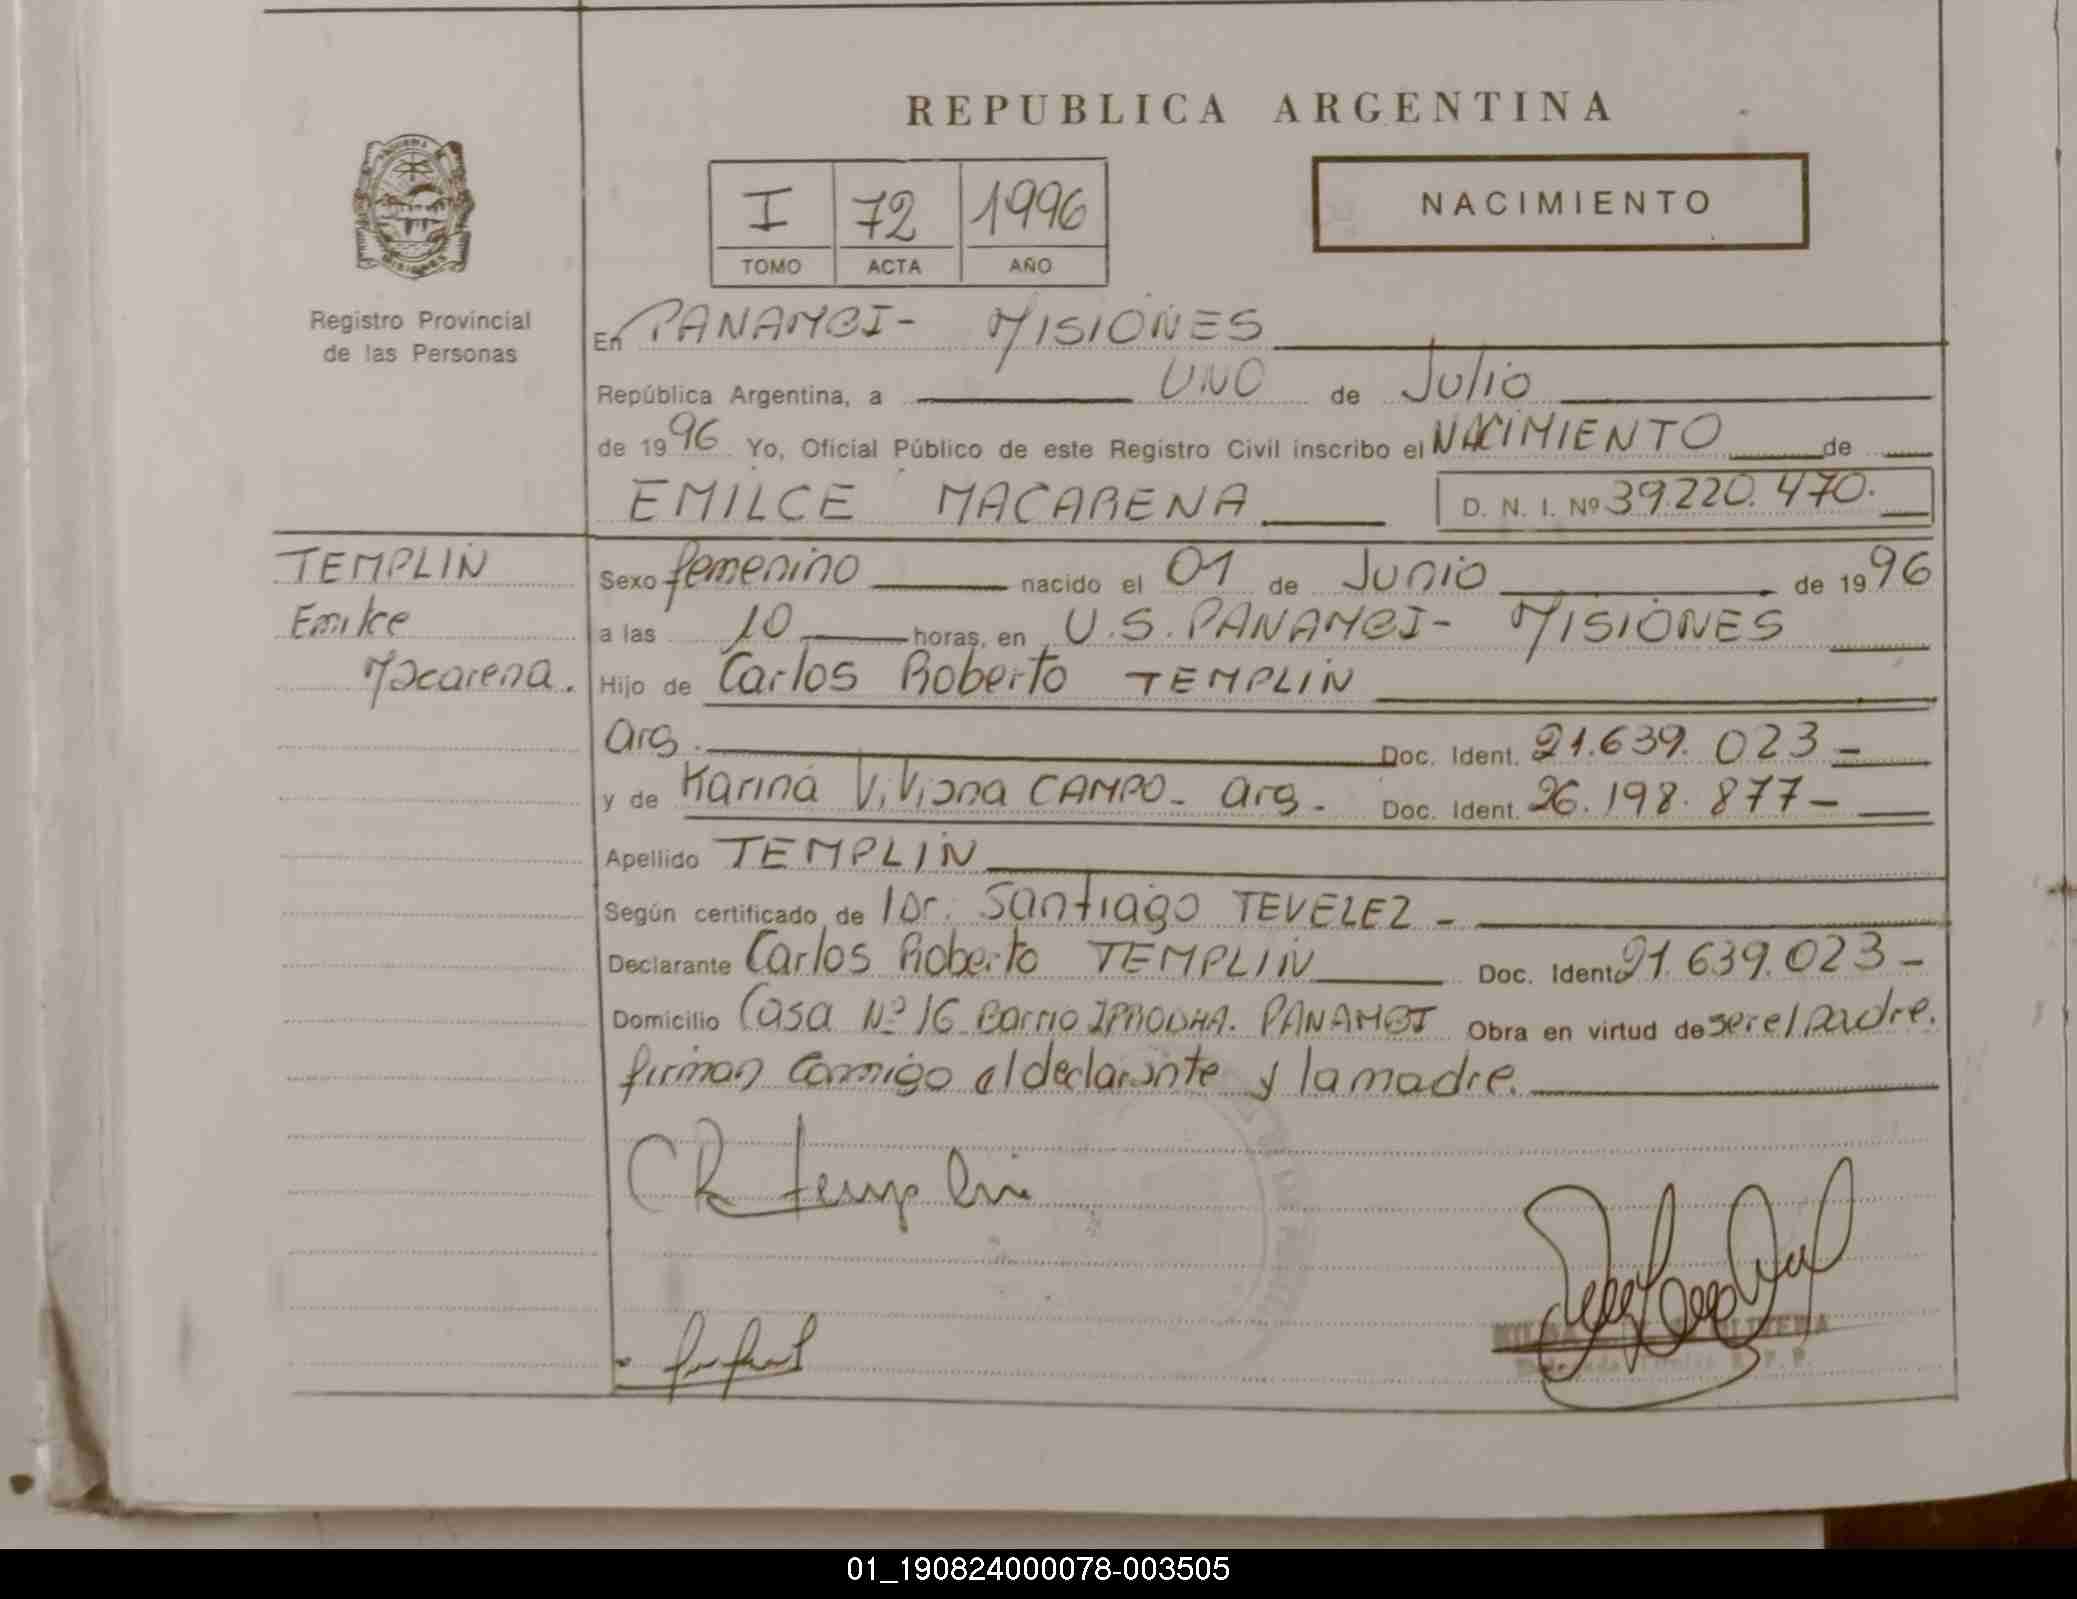 REPUBLICA ARGENTINA
NACIMIENTO
I 72 1996
TOMO ACTA AÑO
Registro Provincial
de las Personas
En PANAMBI- MISIONES
República Argentina, a UNO de Julio
de 1996 Yo, Oficial Público de este Registro Civil inscribo el NACIMIENTO de
EMILCE MACARENA D. N. I. Nº 39.220.470.
TEMPLIN
Emilce
Macarena.
Sexo femenino nacido el 01 de Junio de 1996
a las 10 horas, en U.S. PANAMBI- MISIONES
Hijo de Carlos Roberto TEMPLIN
Arg. Doc. Ident. 21.639.023-
y de Karina Viviana CAMPO- Arg- Doc. Ident. 26.198.877-
Apellido TEMPLIN
Según certificado de Dr. Santiago TEVELEZ -
Declarante Carlos Roberto TEMPLIN Doc. Ident. 21.639.023-
Domicilio Casa Nº 16 Barrio IPRODHA. PANAMBI Obra en virtud de ser el padre.
firman conmigo el declarante y la madre.
CR Templin
01_190824000078-003505